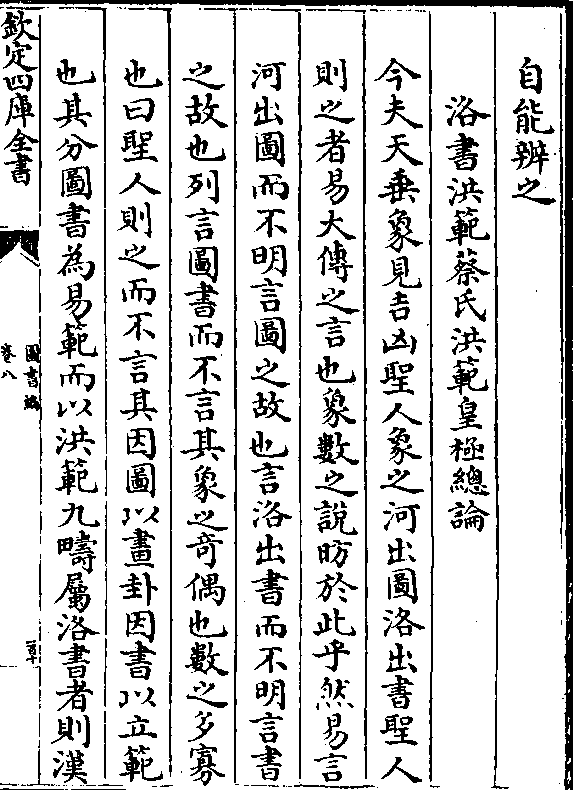 自能辨之
洛書洪範蔡氏洪範皇極總論
今夫天垂象見吉凶聖人象之河出圖洛出書聖人
則之者易大傳之言也象數之說昉於此乎然易言
河出圖而不明言圖之故也言洛出書而不明言書
之故也列言圖書而不言其象之奇偶也數之多寡
也曰聖人則之而不言其因圖以畫卦因書以立範
也其分圖書為易範而以洪範九疇屬洛書者則漢
欽定四庫全書
圖書編
卷八